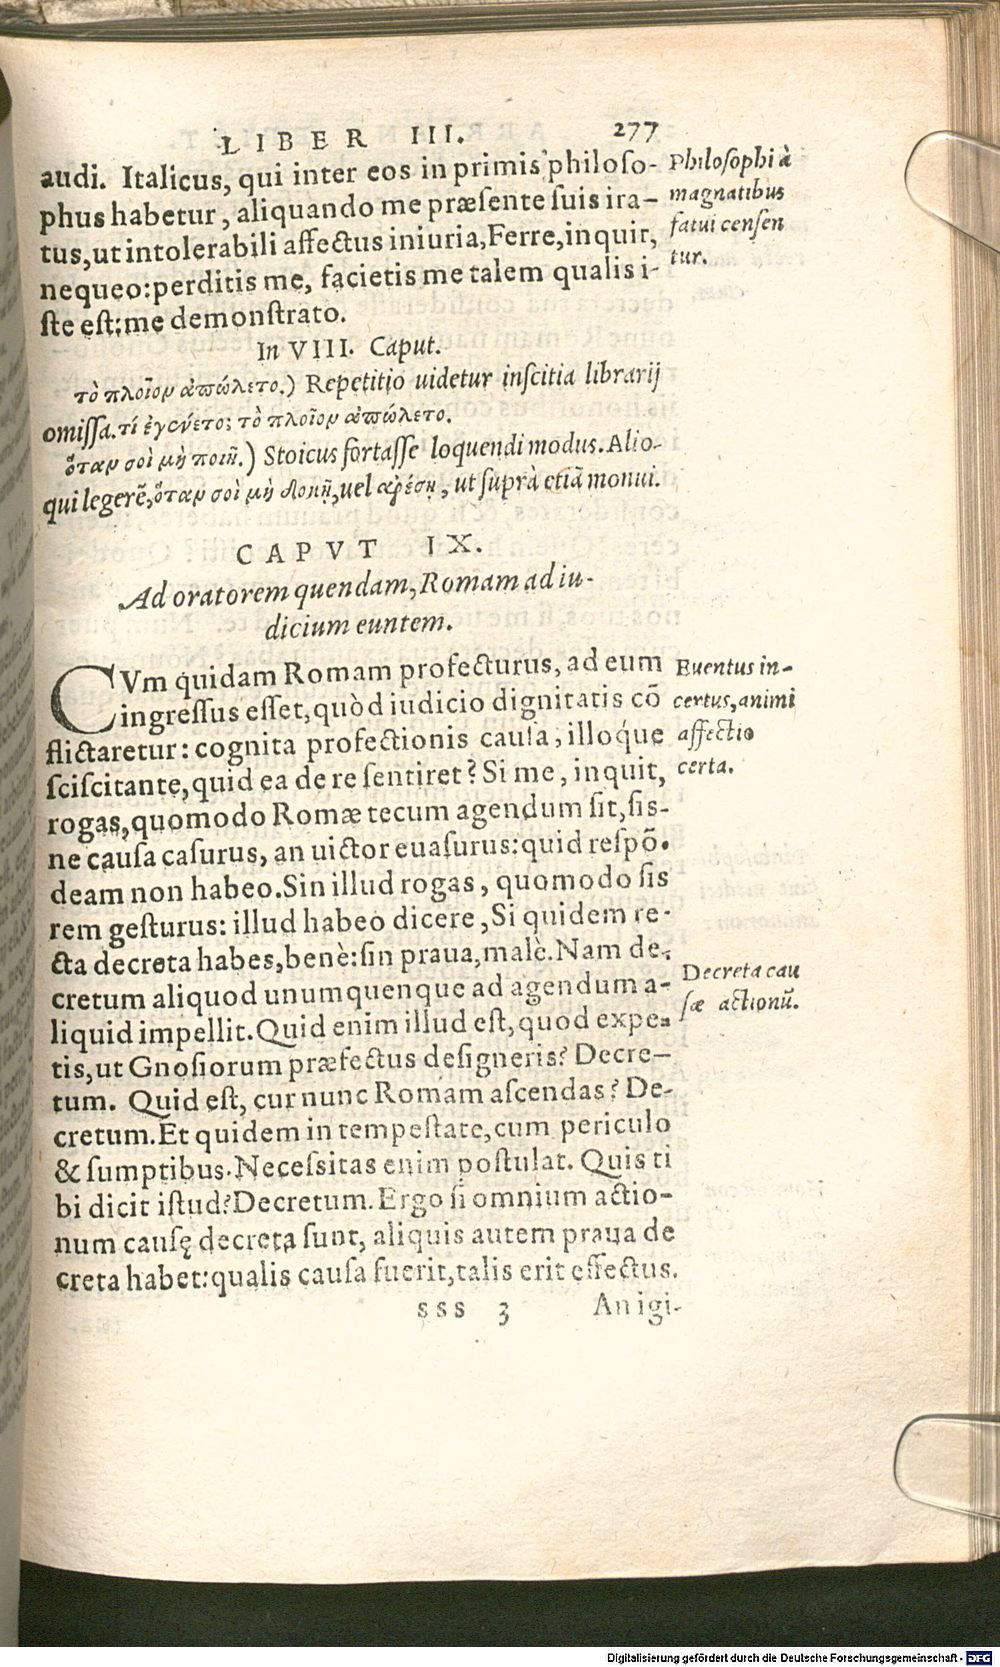 LIBER III. 277
audi. Italicus, qui inter eos in primis philoso-
phus habetur, aliquando me præsente suis ira-
tus, ut intolerabili affectus iniuria, Ferre, inquit,
nequeo: perditis me, facietis me talem qualis i-
ste est: me demonstrato.
Philosophi à
magnatibus
fatui censen
tur.
In VIII. Caput.
τὸ πλοῖον ἀπώλετο.) Repetitio uidetur inscitia librarij
omissa. τί ἐγένετο; τὸ πλοῖον ἀπώλετο.
ὅταν σοὶ μὴ ποιῇ.) Stoicus fortasse loquendi modus. Alio-
qui legerẽ, ὅταν σοὶ μὴ δοκῇ, uel ἀρέσῃ, ut suprà etiã monui.
CAPVT IX.
Ad oratorem quendam, Romam ad iu-
dicium euntem.
CVm quidam Romam profecturus, ad eum
ingressus esset, quòd iudicio dignitatis cõ
flictaretur: cognita profectionis causa, illoq́ue
sciscitante, quid ea de re sentiret? Si me, inquit,
rogas, quomodo Romæ tecum agendum sit, sis-
ne causa casurus, an uictor euasurus: quid respõ-
deam non habeo. Sin illud rogas, quomodo sis
rem gesturus: illud habeo dicere, Si quidem re-
cta decreta habes, benè: sin praua, malè. Nam de-
cretum aliquod unumquenque ad agendum a-
liquid impellit. Quid enim illud est, quod expe-
tis, ut Gnosiorum præfectus designeris? Decre-
tum. Quid est, cur nunc Romam ascendas? De-
cretum. Et quidem in tempestate, cum periculo
& sumptibus. Necessitas enim postulat. Quis ti
bi dicit istud? Decretum. Ergo si omnium actio-
num causę decreta sunt, aliquis autem praua de
creta habet: qualis causa fuerit, talis erit effectus.
Euentus in-
certus, animi
affectio
certa.
Decreta cau
sæ actionũ.
sss 3 An igi-
Digitalisierung gefördert durch die Deutsche Forschungsgemeinschaft - DFG